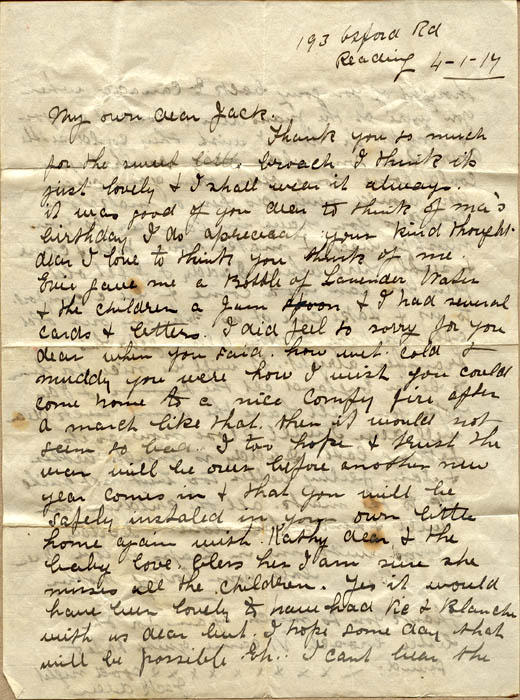 193 Oxford Rd
Reading 4-1-17
My own dear Jack.
Thank you so much
for the sweet little broach I think its
just lovely & I shall wear it always.
it was good of you dear to think of ma's
birthday I do apreciat your kind thought
dear I love to think you think of me.
Evie gave me a Bottle of Lavender Water
& the children a Jam spoon & I had several
cards & letters. I did feel so sorry for you
dear when you said. how wet. cold &
muddy you were how I wish you could
come home to a nice comfy fire after
a march like that. then it would not
seem so bad. I too hope & trust the
war will be over before another new
year comes in & that you will be
safely instaled in your own little
home again with Kathy dear & the
baby love. bless her I am sure she
misses all the children. Yes it would
have been lovely to have had Vic & Blanche
with us dear but. I hope some day that
will be possible Eh. I cant bear the